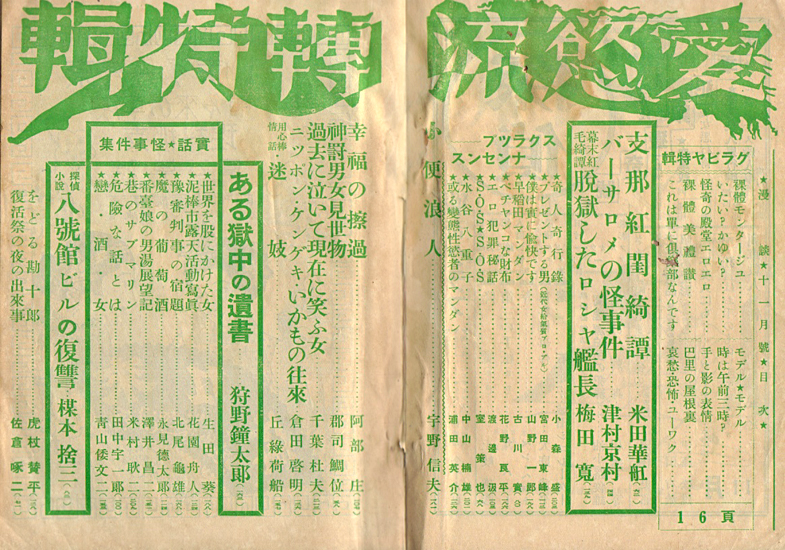 愛慾流轉特輯
★漫談★十一月號★目次★
グラビヤ特輯
裸體モンタージユ
いたい？かゆい？
怪奇の殿堂エロエロ
裸體美禮讃
これは單に倶樂部なんです
モデル★モデル
時は午前三時？
手と影の表情
巴里の屋根裏
哀愁・恐怖・ユーワク
16頁
支那紅閨綺譚 米田華舡
バーサロメの怪事件 津村京村
幕末紅毛綺譚 脱獄したロシヤ艦長 梅田寛
スクラツプ
ナンセンス
奇人奇行錄 小森盛
プレゼントする男 宮田東峰
僕は實に愉快です 山野一郎
早稻田マンダン 古川實
ペチヤンコな財布 花野艮平
エロ犯罪秘話 渡邊
SÔS★SÔS 室策也
水谷八重子 中山楠雄
或る變態性慾者のマンダン 浦田英介
小便浪人 宇野信夫
幸福の擦過 阿部庄
神罸男女見世物 郡司鯛位
過去に泣いて現在に笑ふ女 千葉杜夫
ニツポン・ケンゲキ・いかもの往來 倉田啓明
用心棒情話・迷妓 丘綠荷船
ある獄中の遺書 狩野鐘太郎
實話★怪事件集
★世界を股にかけた女 生田葵
★泥棒市露天活動寫眞 花園舟人
★豫審判事の宿題 北尾龜雄
★魔の葡萄酒 永見德太郎
★番臺娘の男湯展望記 澤井昌二
★巷のサブマリン 米村歌二
★危險な話とは 田中宇一郎
★戀・酒・女 青山倭文二
探偵小說 八號館ビルの復讐 楳本捨三
をどる勘十郎 虎杖贊平
復活祭の夜の出來事 佐倉啄二